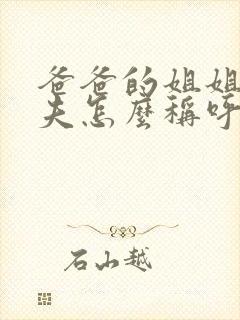 爸爸的姐姐
夫怎麼稱呼
石山越